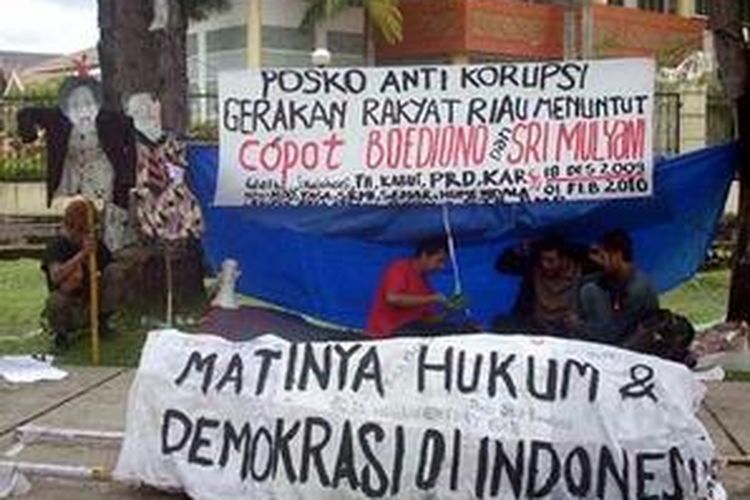 POSKO ANTI KORUPSI
GERAKAN RAKYAT RIAU MENUNTUT
COPOT BOEDIONO dan SRI MULYANI
PRD, KAR
18 DES 2009
01 FEB 2010
MATINYA HUKUM &
DEMOKRASI DI INDONES